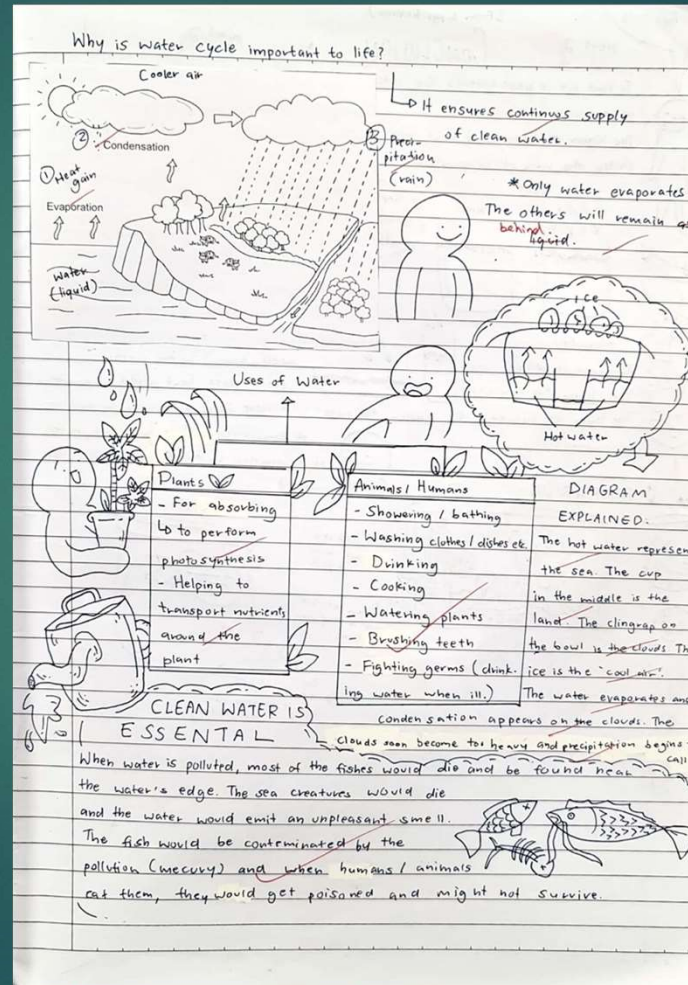 Why is water cycle important to life?
Cooler air
② Condensation
① Heat gain
Evaporation
Water
(liquid)
③ Preci-
pitation
(rain)
↳ It ensures continuos supply
of clean water.
* Only water evaporates
The others will remain as
behind
liquid.
Ice
Hot water
Uses of Water
Plants
- For absorbing
↳ to perform
photosynthesis
- Helping to
transport nutrients
around the
plant
Animals / Humans
- Showering / bathing
- Washing clothes / dishes etc.
- Drinking
- Cooking
- Watering plants
- Brushing teeth
- Fighting germs (drink-
ing water when ill.)
DIAGRAM
EXPLAINED:
The hot water represen
the sea. The cup
in the middle is the
land. The clingrap on
the bowl is the clouds Th
ice is the "cool air".
The water evaporates and
condensation appears on the clouds. The
clouds soon become too heavy and precipitation begins
call
CLEAN WATER IS
ESSENTAL
When water is polluted, most of the fishes would die and be found near
the water's edge. The sea creatures would die
and the water would emit an unpleasant smell.
The fish would be conteminated by the
pollution (mecury) and when humans / animals
eat them, they would get poisoned and might not survive.